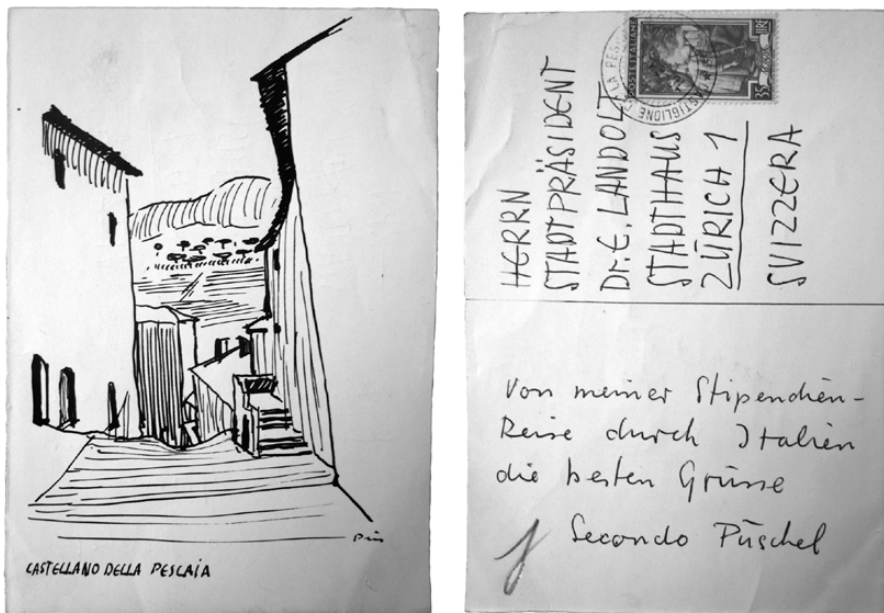 Püs
CASTELLANO DELLA PESCAIA
POSTE ITALIANE
LIRE
35
CASTIGLIONE DELLA PESCAIA
HERRN
STADTPRÄSIDENT
Dr. E. LANDOLT
STADTHAUS
ZÜRICH 1
SVIZZERA
Von meiner Stipendien-
Reise durch Italien
die besten Grüsse
Secondo Püschel